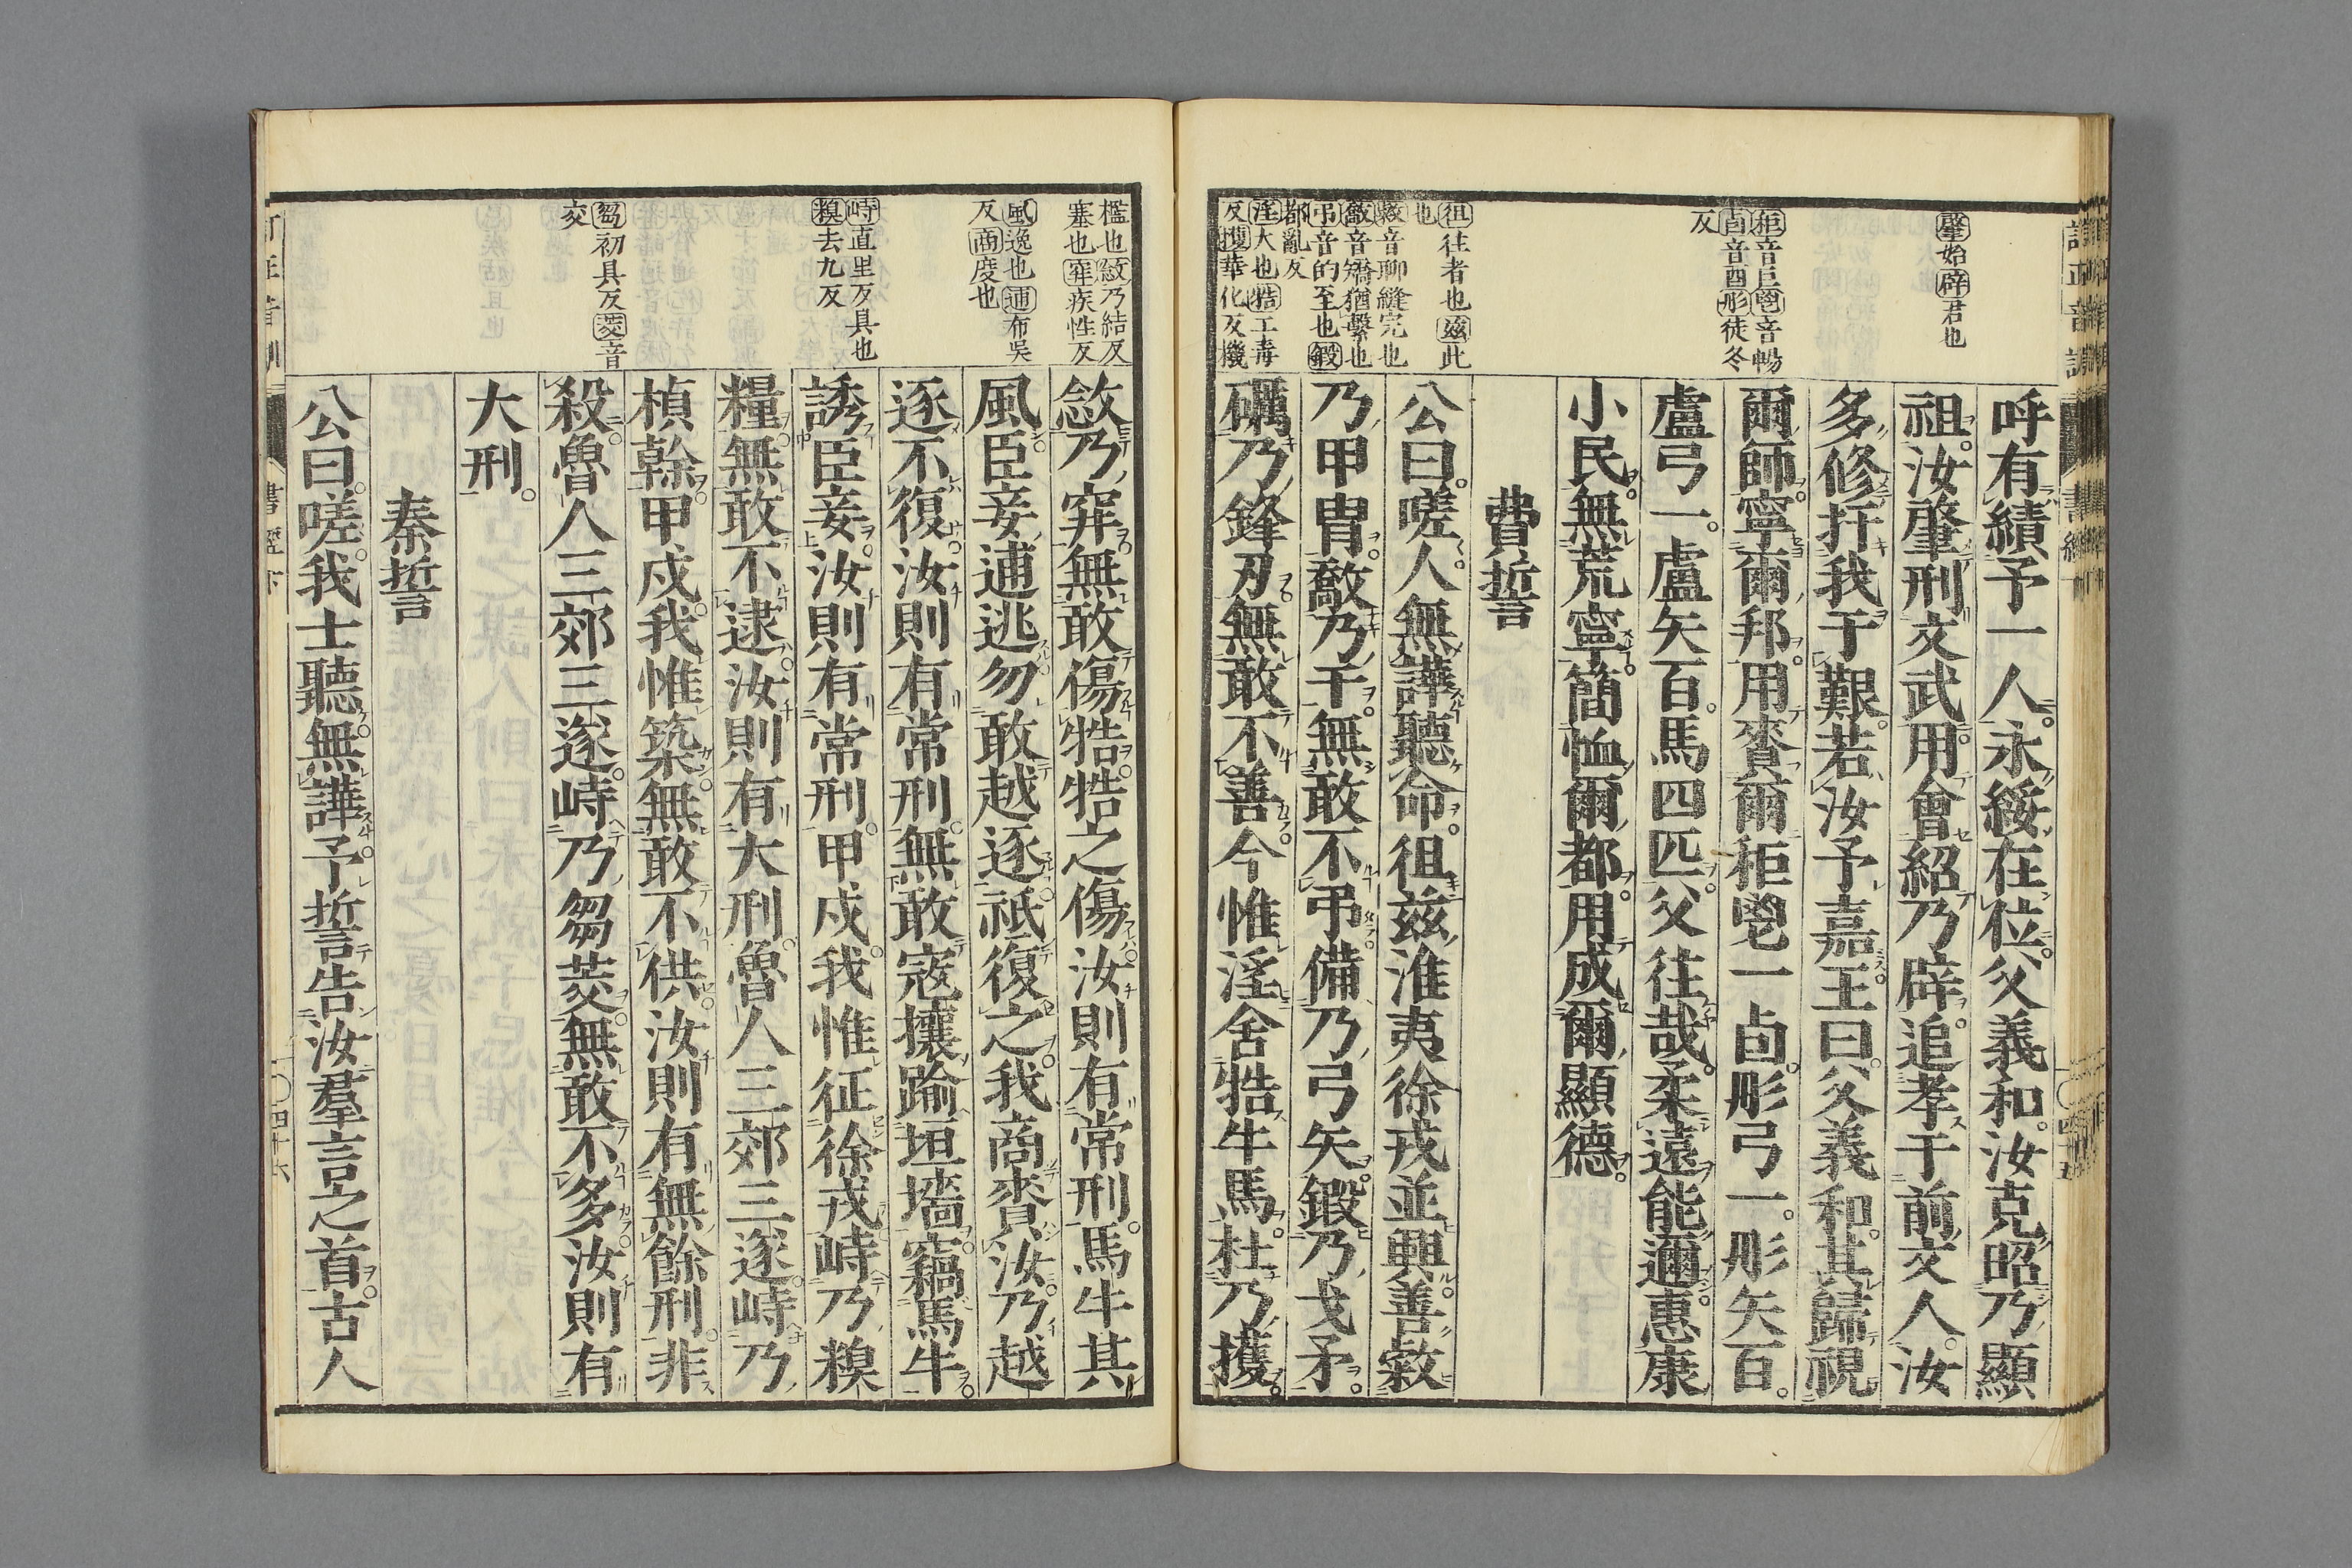 訂正音訓
書經下
〇四十五
肇始辟君也
秬音巨鬯音暢
卣音酉彤徒冬
反
徂往者也茲此
也
敹音聊縫完也
敿音矯猶繫也
弔音的至也鍛
都亂反
淫大也牿工毒
反擭華化反機
呼有績予一人。永綏在位。父義和。汝克昭乃顯
祖。汝肇刑文武。用會紹乃辟。追孝于前文人。汝
多修扞我于艱。若汝予嘉。王曰。父義和。其歸視
爾師。寧爾邦。用賚爾秬鬯一卣。彤弓一。彤矢百。
盧弓一。盧矢百。馬四匹。父往哉。柔遠能邇。惠康
小民。無荒寧。簡恤爾都。用成爾顯德。
費誓
公曰。嗟人無譁聽命。徂茲淮夷徐戎並興。善敹
乃甲冑。敿乃干。無敢不弔。備乃弓矢。鍛乃戈矛。
礪乃鋒刃。無敢不善。今惟淫舍牿牛馬。杜乃擭。
檻也敜乃結反
塞也穽疾性反
風逸也逋布吳
反商度也
峙直里反具也
糗去九反
芻初具反茭音
交
敜乃穽。無敢傷牿。牿之傷。汝則有常刑。馬牛其
風。臣妾逋逃。勿敢越逐。祗復之。我商賚汝。乃越
逐不復。汝則有常刑。無敢寇攘。踰垣墻。竊馬牛。
誘臣妾。汝則有常刑。甲戌。我惟征徐戎。峙乃糗
糧。無敢不逮。汝則有大刑。魯人三郊三逐。峙乃
楨榦。甲戌。我惟築。無敢不供。汝則有無餘刑。非
殺。魯人三郊三逐。峙乃芻茭。無敢不多。汝則有
大刑。
秦誓
公曰。嗟。我士聽。無譁。予誓告汝羣言之首。古人
訂正音訓
書經下
〇四十六